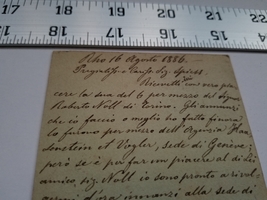 1 2 3 4 5 6 7
Riho 16 Agosto 1886.
Pregiatiss.o e Cariss. Sig. Spiess
Ricevetti con vero pia-
cere la sua del 6 per mezzo del Signor
Roberto Noll di Torino. Gli annunzi
che io faccio o meglio ho fatto finora
lo furono per mezzo dell'Agenzia Haa-
senstein et Vogler, sede di Genova;
però se è per far un piacere al di lei
amico sig. Noll io sono pronto a rivol-
germi d'ora innanzi alla sede di